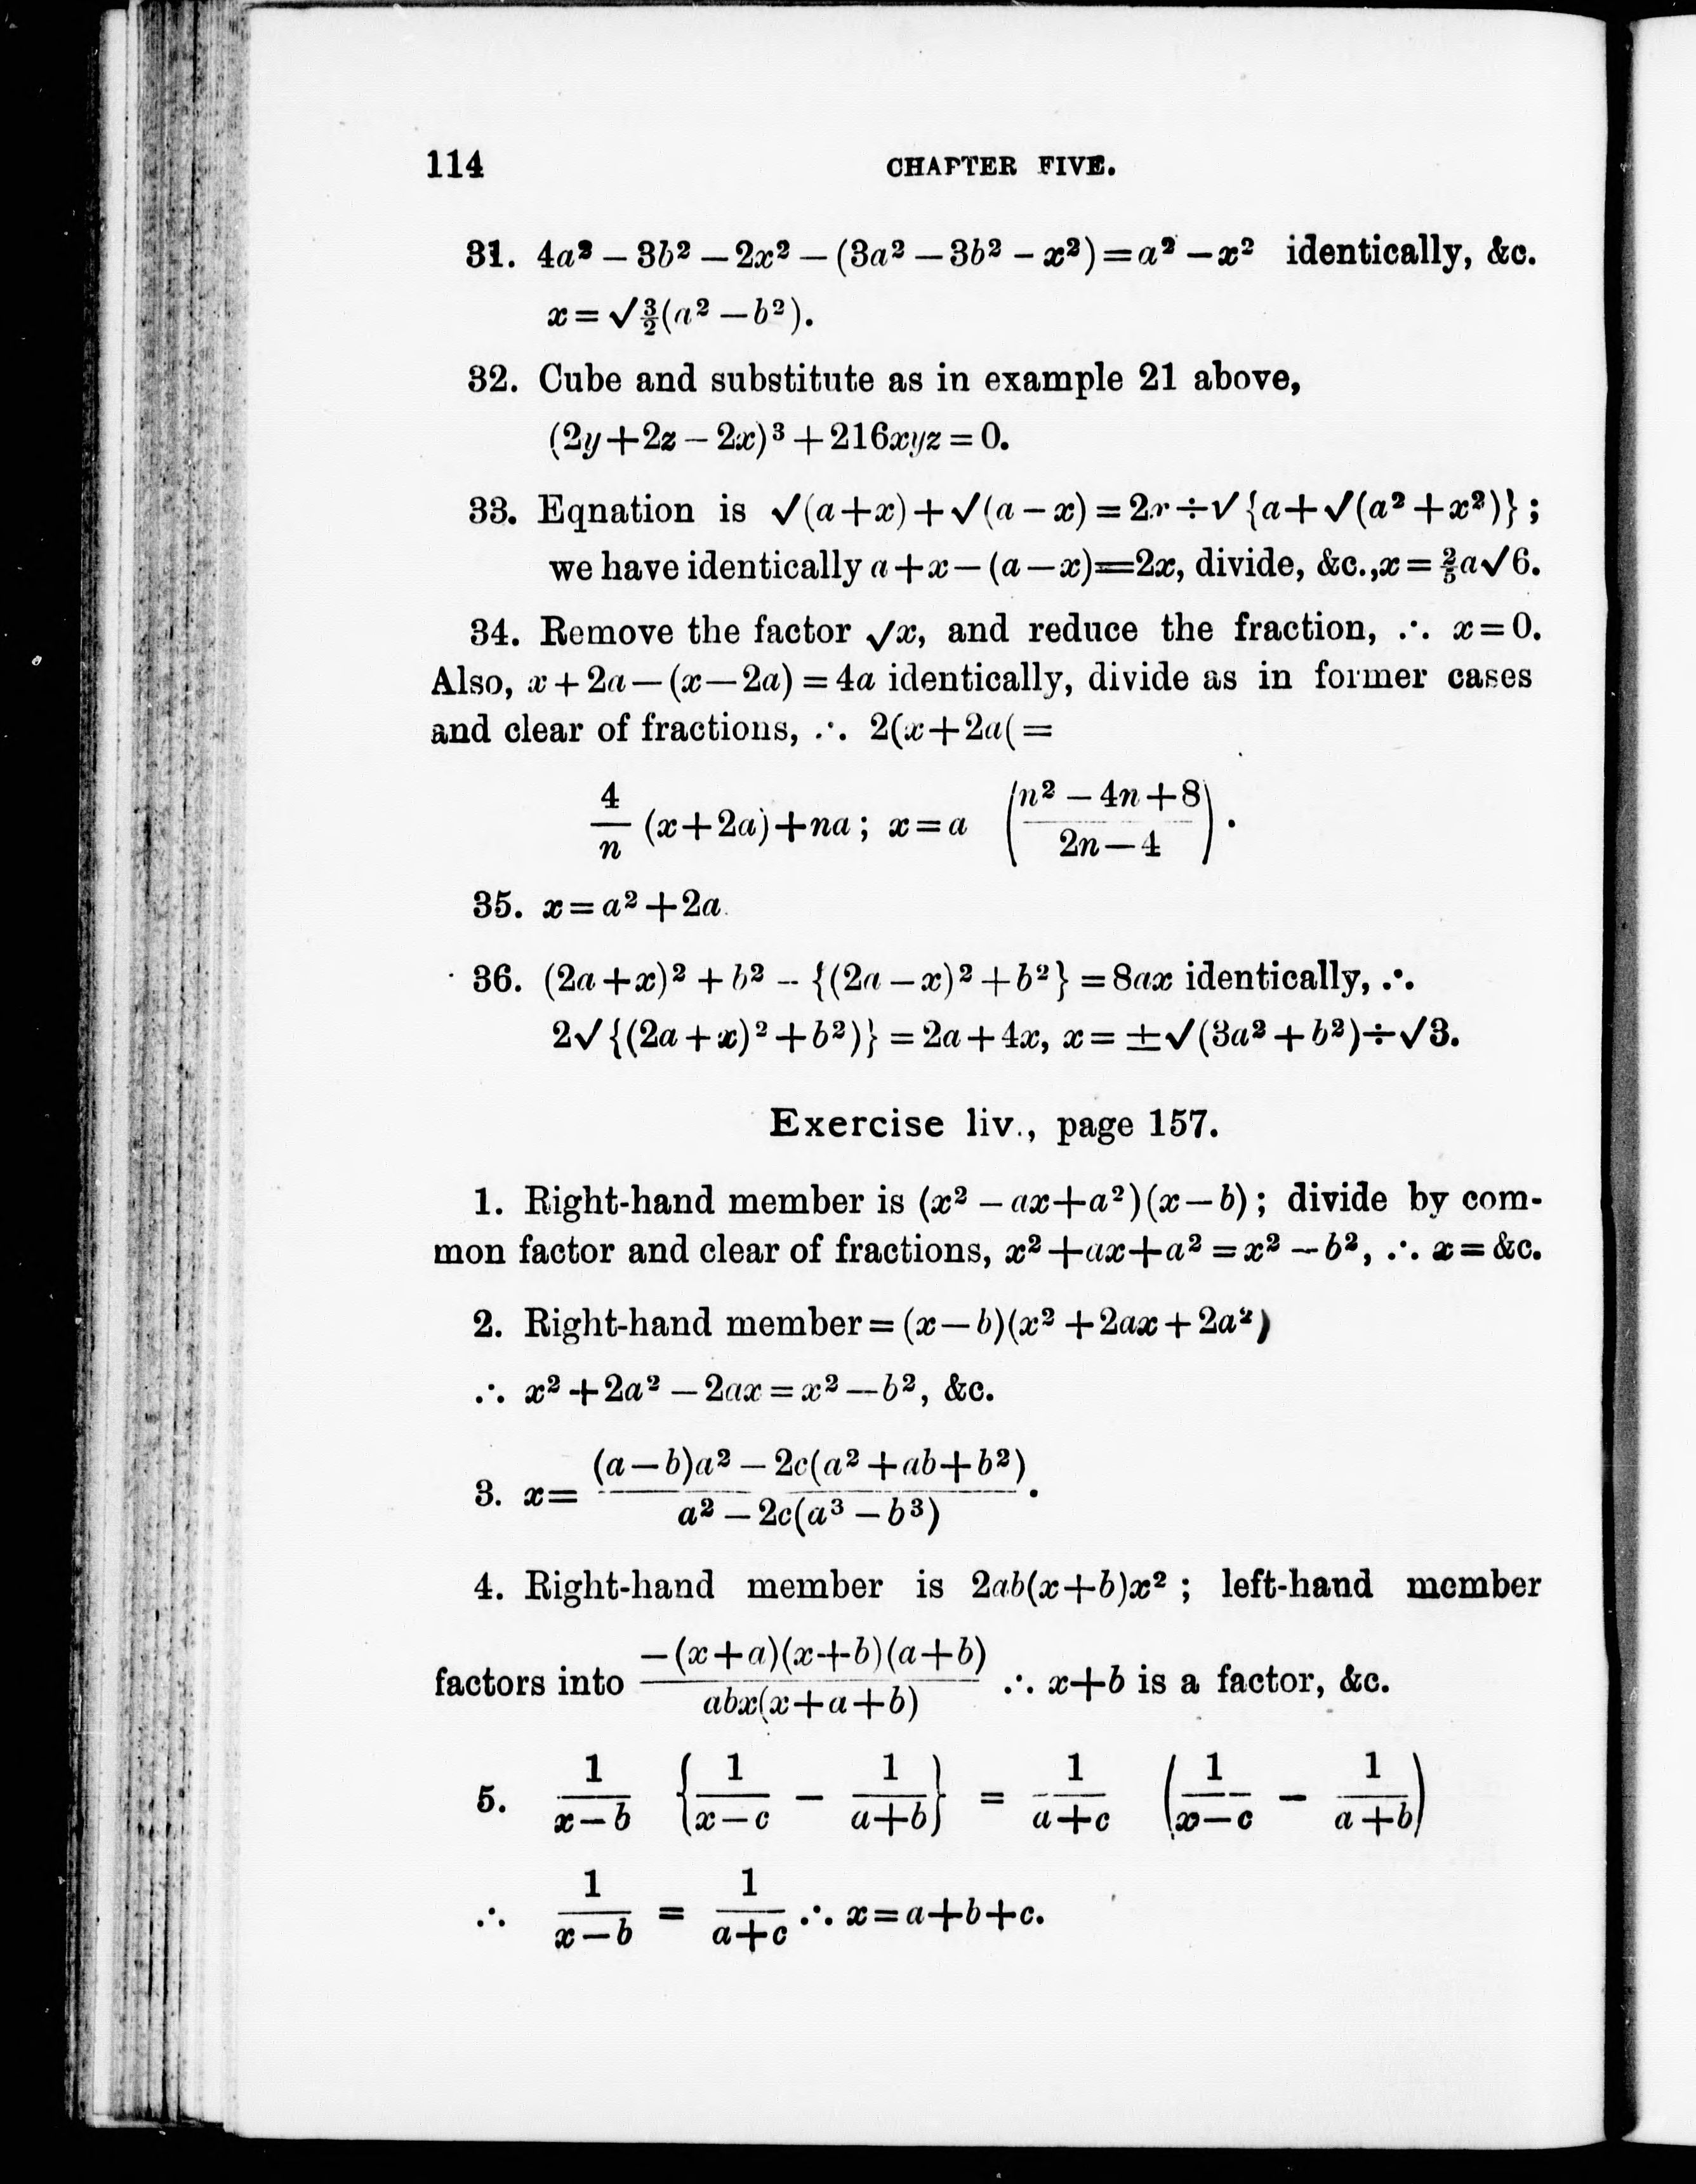 114 CHAPTER FIVE.
31. 4a² – 3b² – 2x² – (3a² – 3b² – x²) = a² – x² identically, &c.
x = √3/2(a² – b²).
32. Cube and substitute as in example 21 above,
(2y + 2z – 2x)³ + 216xyz = 0.
33. Eqnation is √(a+x) + √(a – x) = 2x ÷ √{a + √(a² + x²)} ;
we have identically a + x – (a – x) = 2x, divide, &c., x = 2/5a√6.
34. Remove the factor √x, and reduce the fraction, ∴ x = 0.
Also, x + 2a – (x – 2a) = 4a identically, divide as in former cases
and clear of fractions, ∴ 2(x + 2a( =
4/n (x + 2a) + na ; x = a ((n² – 4n + 8)/(2n – 4)).
35. x = a² + 2a.
36. (2a + x)² + b² – {(2a – x)² + b²} = 8ax identically, ∴
2√{(2a + x)² + b²)} = 2a + 4x, x = ±√(3a² + b²) ÷ √3.
Exercise liv., page 157.
1. Right-hand member is (x² – ax + a²)(x – b) ; divide by com-
mon factor and clear of fractions, x² + ax + a² = x² – b², ∴ x = &c.
2. Right-hand member = (x – b)(x² + 2ax + 2a²)
∴ x² + 2a² – 2ax = x² – b², &c.
3. x = ((a – b)a² – 2c(a² + ab + b²))/(a² – 2c(a³ – b³)).
4. Right-hand member is 2ab(x + b)x² ; left-hand member
factors into –(x + a)(x + b)(a + b)/abx(x + a + b) ∴ x + b is a factor, &c.
5. 1/(x – b) {1/(x – c) – 1/(a + b)} = 1/(a + c) (1/(x – c) – 1/(a + b))
∴ 1/(x – b) = 1/(a + c) ∴ x = a + b + c.